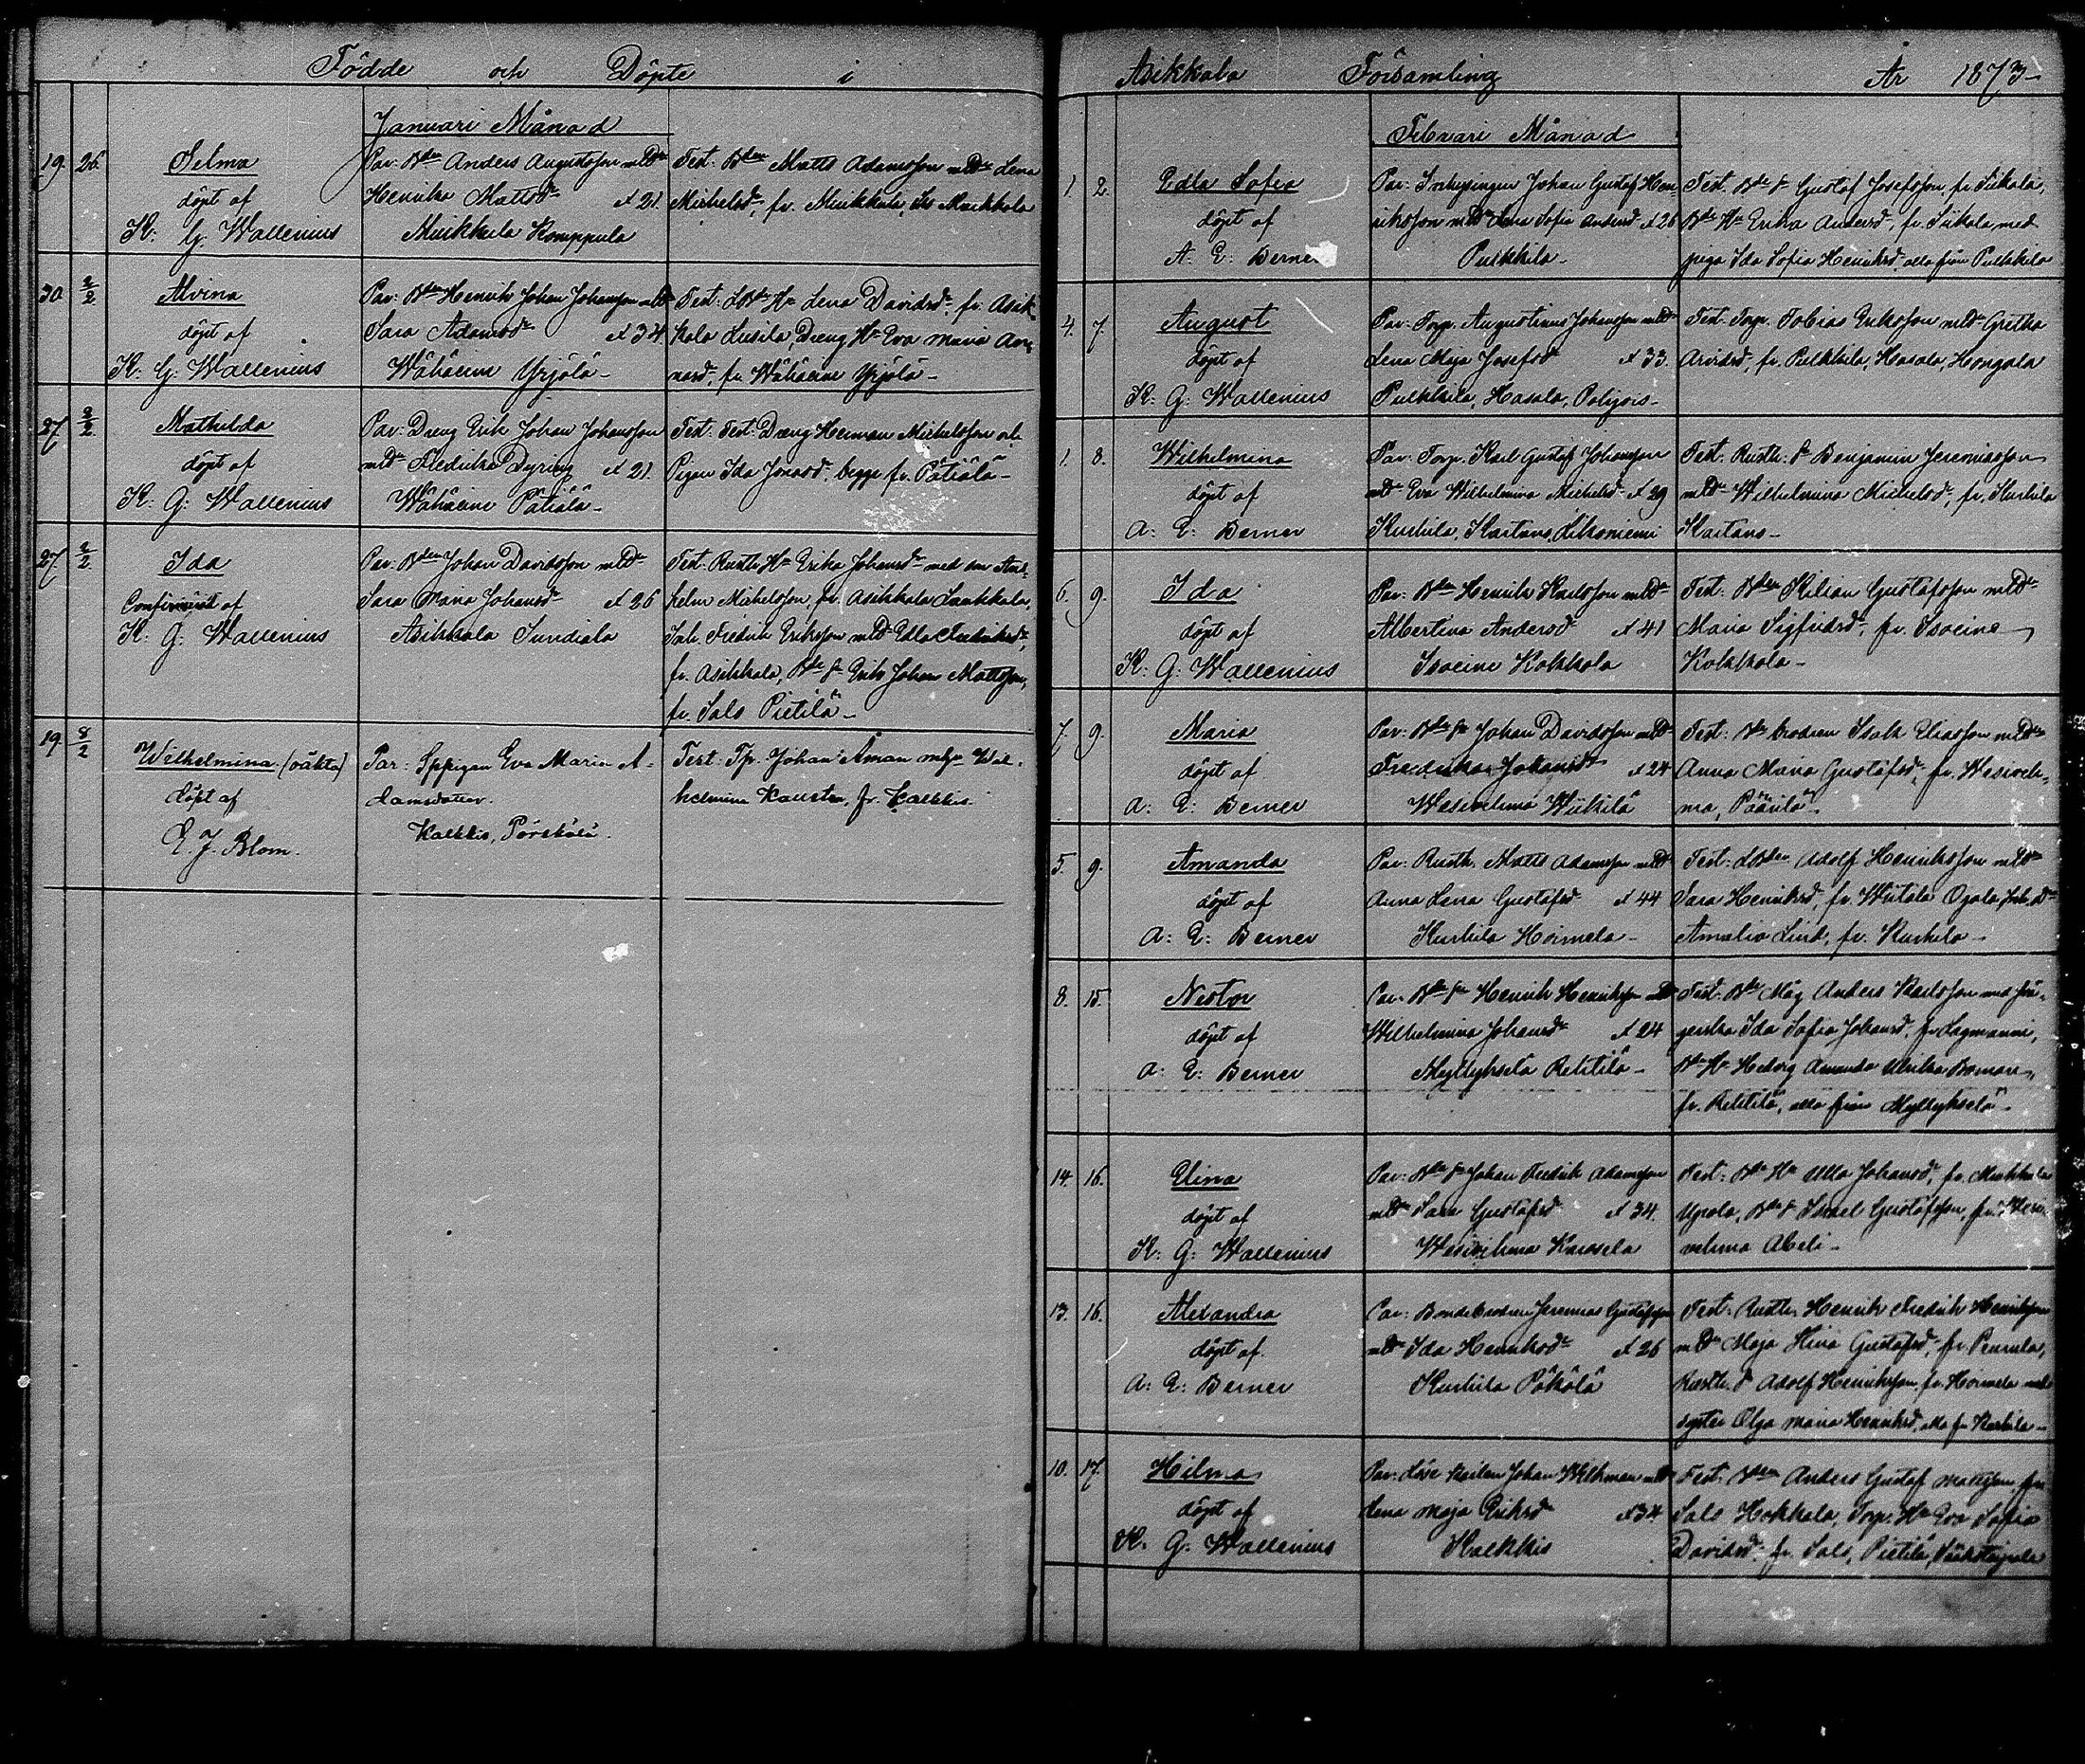 Födde och Döpte i
Januari Månad
19. 26. Selma
döpt af
K: G: Wallenius
Par: Bden Anders Augustsson mld
Henrika Mattsd: et 21.
Muikkula Komppula
Test. Bden Matts Adamsson mld Lena
Michelsd, fr. Muikkula
30 2/2 Alvina
döpt af
K: G: Wallenius
Par: Bden Henrik Johan Johansson mld
Sara Adamsd: et 34.
Wähäeine Yrjölä -
Test: LBde Hu Lena Davidsd: fr. Asik-
kala Dreng Hu Eva Maria
fr. Wähäeine Yrjölä -
27 2/2 Mathilda
döpt af
K: G: Wallenius
Par: Dreng Erik Johan Johansson
mld Fredrika Dyring et 21.
Wähäeine Pätiälä -
Test: Test: Dreng Herman Michelsson och
Pigan Ida Jonasd. begge fr. Pätiälä -
27. 2/2 Ida
Confirmerat af
K: G: Wallenius
Par: Bden Johan Davidsson mld
Sara Maria Johansd: et 26
Asikkala Sundiala
Test: Rusth Hu Erika Johansd: med son
Michelsson, fr. Asikkala
Fredrik Eriksson mld Edla
fr. Asikkala, Bde S. Erik Johan Mattsson,
fr. Sals Pietilä -
19. 8/2 Wilhelmina (oäkta)
döpt af
E. J. Blom.
Par: Sppigan Eva Maria A-
damsdotter.
Kalkkis, Pörskölä.
Test: Tp. Johan Åman m/hu Wil-
helmina fr. Kalkkis.
Asikkala Församling År 1873-
Februari Månad
1. 2. Edla Sofia
döpt af
A. E: Berner
Par: Inhysingen Johan Gustaf Hen-
riksson mld Lena Sofia Andersd et 26
Pulkkila -
Test: Bde S. Gustaf Josefsson, fr. Siikala,
Bde Hu Erika Andersd, fr. Siikala med
piga Ida Sofia Henriksd, alla från Pulkkila
4. 7. August
döpt af
K: G: Wallenius
Par: Torp. Augustinus Johansson mld
Lena Maja Josefsd et 33.
Pulkkila, Hasala,
Test: Torp. Tobias Eriksson mld Gretha
Arvidsd, fr. Pulkkila, Hasala,
1. 8. Wilhelmina
döpt af
A: E: Berner
Par: Torp. Karl Gustaf Johansson
mld Eva Wilhelmina Michelsd et 29
Kurhila, Kartano,
Test: Rusth: S. Benjamin Jeremiasson
mld Wilhelmina Michelsd, fr. Kurhila
Kartano -
6. 9. Ida
döpt af
K: G: Wallenius
Par: Bden Henrik Karlsson mld
Albertina Andersd et 41
Isoeine Kokkola
Test: Bden Kilian Gustafsson mld
Maria Sigfridsd, fr. Isoeine
Kokkola -
7. 9. Maria
döpt af
A: E: Berner
Par: Bde S. Johan Davidsson mld
Fredrika Johansd et 24
Wesivehma Wiikilä
Test: Bde brodren Isak Eliasson mld
Anna Maria Gustafsd, fr. Wesiveh-
ma, Paavila -
5. 9. Amanda
döpt af
A: E: Berner
Par: Rusth. Matts Adamsson mld
Anna Lena Gustafsd et 44
Kurhila Hoimela -
Test: LBden Adolf Henriksson mld
Sara Henriksd, fr.
Amalia Lind, fr. Kurhila -
8. 15. Nestor
döpt af
A: E: Berner
Par: Bde S. Henrik Henriksson mld
Wilhelmina Johansd et 24
Myllykselä Retitilä -
Test: Bde Måg Anders Karlsson med
Ida Sofia Johansd, fr. Lagmanni,
Bde Hu Hedvig Amanda Ulrika
fr. Retitilä, alla från Myllykselä -
14. 16. Elina
döpt af
K: G: Wallenius
Par: Bde S. Johan Fredrik Adamsson
mld Sara Gustafsd et 34.
Wesivehma
Test: Bde Hu Ulla Johansd, fr.
Bde S. Israel Gustafsson, fr. Wesi-
vehma Abeli -
13. 16. Alexandra
döpt af
A: E: Berner
Par: Bondebrodren Jeremias Gustafsson
mld Ida Henriksd et 26
Kurhila Pökölä
Test: Rusth. Henrik Fredrik Henriksson
mld Maja Stina Gustafsd, fr.
Rusth. S. Adolf Henriksson, fr. Hoimela med
syster Olga Maria Henriksd, alla fr. Kurhila -
10. 17. Hilma
döpt af
K: G: Wallenius
Par: Löse Karlen Johan mld
Lena Maja Eriksd et 34
Kalkkis
Test: Bden Anders Gustaf Mattsson, fr.
Sals Torp. Hu Eva Sofia
Davidsd, fr. Sals, Pietilä,